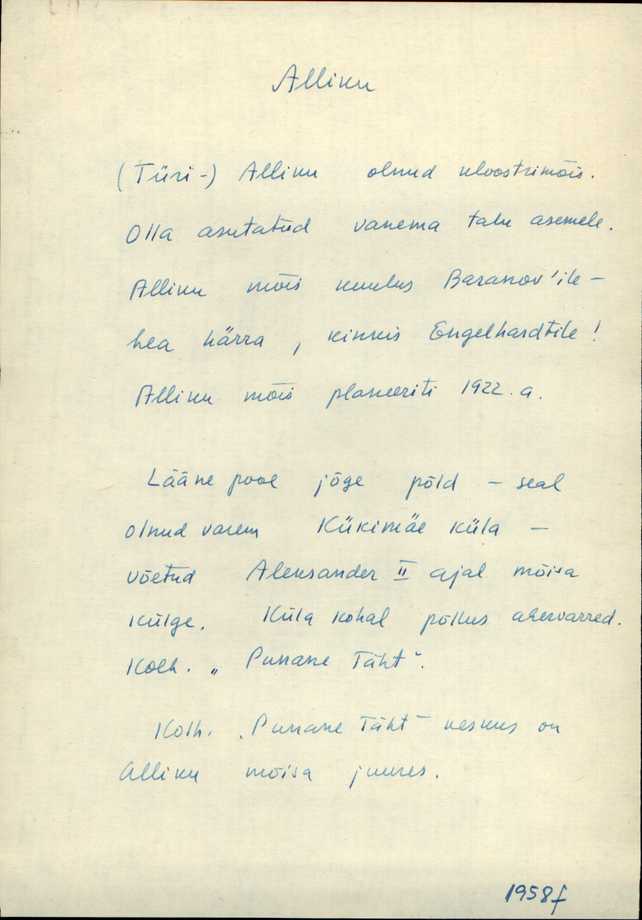 Alliku
(Türi-) Alliku olnud kloostrimõis.
Olla asutatud vanema talu asemele.
Alliku mõis kuulus Baranov'ile –
hea härra, kinkis Engelhardtile!
Alliku mõis planeeriti 1922. a.
Lääne pool jõge põld – seal
olnud varem Kükimäe küla –
võetud Aleksander II ajal mõisa
külge. Küla kohal põllus ahervarred.
Kolh. „Punane Täht“.
Kolh. „Punane Täht“ keskus on
Alliku mõisa juures.
1958f